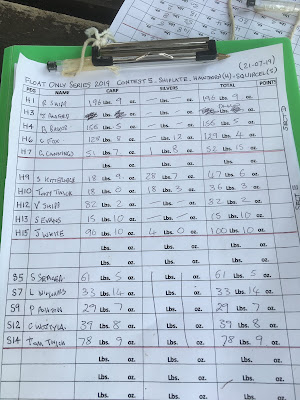 FLOAT ONLY SERIES 2019 CONTEST 5. SHIPLATE, HAWTHORN (H) - SQUIRREL (S) (21-07-19)
PEG NAME CARP SILVERS TOTAL POINTS
H1 R SHIPP 196 Lbs. 9 oz. Lbs. oz. 196 Lbs. 9 oz.
H3 Lbs. oz. Lbs. oz. Lbs. oz.
H4 156 Lbs. 5 oz. Lbs. oz. 156 Lbs. 5 oz.
H6 C FOX 128 Lbs. 8 oz. Lbs. 12 oz. 129 Lbs. 4 oz.
H7 G CANNINGS 51 Lbs. 7 oz. 1 Lbs. 8 oz. 52 Lbs. 15 oz.
Lbs. oz. Lbs. oz. Lbs. oz.
H9 18 Lbs. 9 oz. 28 Lbs. 7 oz. 47 Lbs. 6 oz.
H10 TONY 18 Lbs. 0 oz. 18 Lbs. 3 oz. 36 Lbs. 3 oz.
H12 V SHIPP 82 Lbs. 2 oz. Lbs. oz. 82 Lbs. 2 oz.
H13 15 Lbs. 10 oz. Lbs. oz. 15 Lbs. 10 oz.
H15 J WHITE 96 Lbs. 10 oz. 4 Lbs. 0 oz. 100 Lbs. 10 oz.
Lbs. oz. Lbs. oz. Lbs. oz.
S5 S 61 Lbs. 5 oz. Lbs. oz. 61 Lbs. 5 oz.
S7 L WILLIAMS 33 Lbs. 14 oz. Lbs. oz. 33 Lbs. 14 oz.
S9 P 29 Lbs. 7 oz. Lbs. oz. 29 Lbs. 7 oz.
S12 G 39 Lbs. 8 oz. Lbs. oz. 39 Lbs. 8 oz.
S14 TOM 78 Lbs. 9 oz. Lbs. oz. 78 Lbs. 9 oz.
Lbs. oz. Lbs. oz. Lbs. oz.